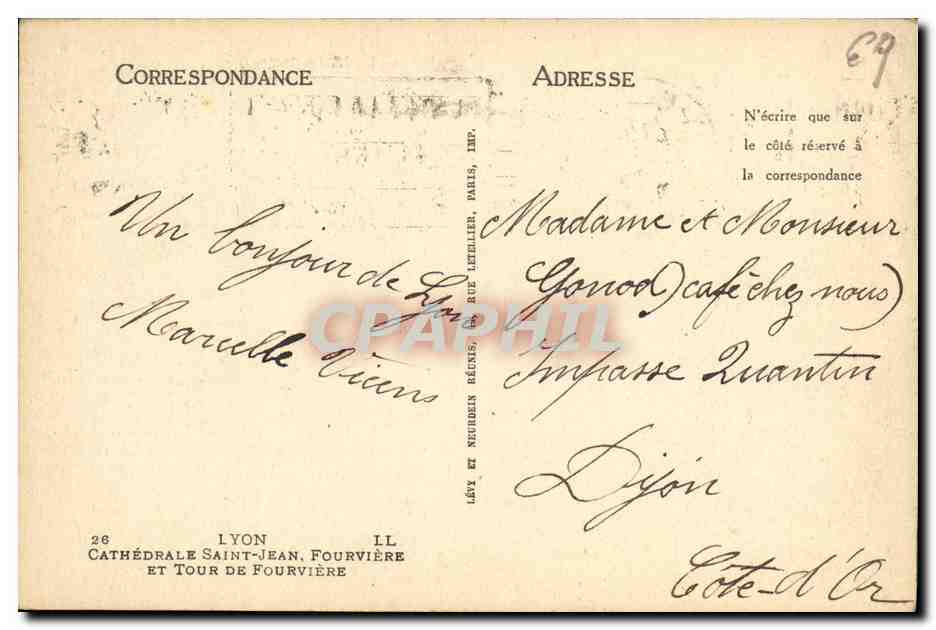 CORRESPONDANCE
ADRESSE
N'écrire que sur
le côté réservé à
la correspondance
Un bonjour de Lyon
Marcelle Vicens
LÉVY ET NEURDEIN RÉUNIS, RUE LETELLIER, PARIS, IMP.
Madame et Monsieur
Gonod) café chez nous)
Impasse Quantin
Dijon
Côte-d'Or
CPAPHIL
26 LYON LL
CATHÉDRALE SAINT-JEAN, FOURVIÈRE
ET TOUR DE FOURVIÈRE